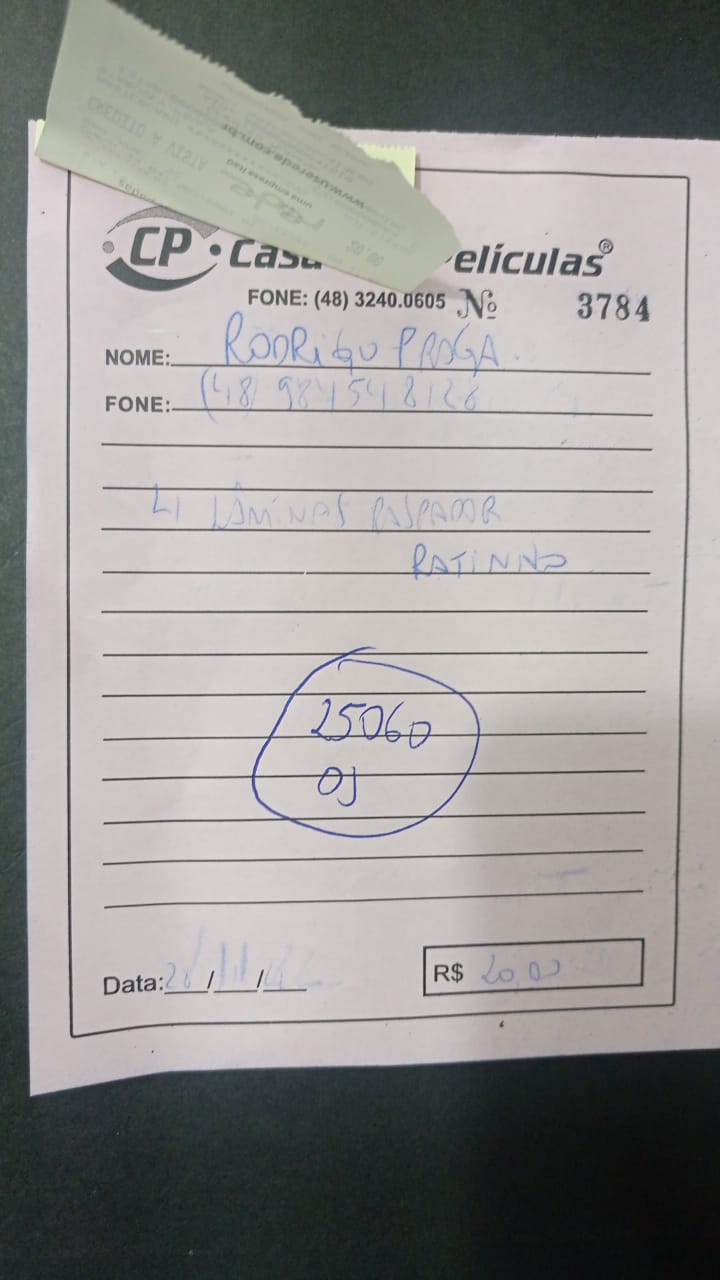 CREDITO A VISTA
www.userede.com.br
uma empresa Itaú
rede
CP • Casa elículas®
FONE: (48) 3240.0605 Nº 3784
NOME: RODRIGO PRAGA.
FONE: (48) 984548126
LÂMINAS RASPADOR
RATINHO
25060
OJ
Data: / /
R$ 20,00